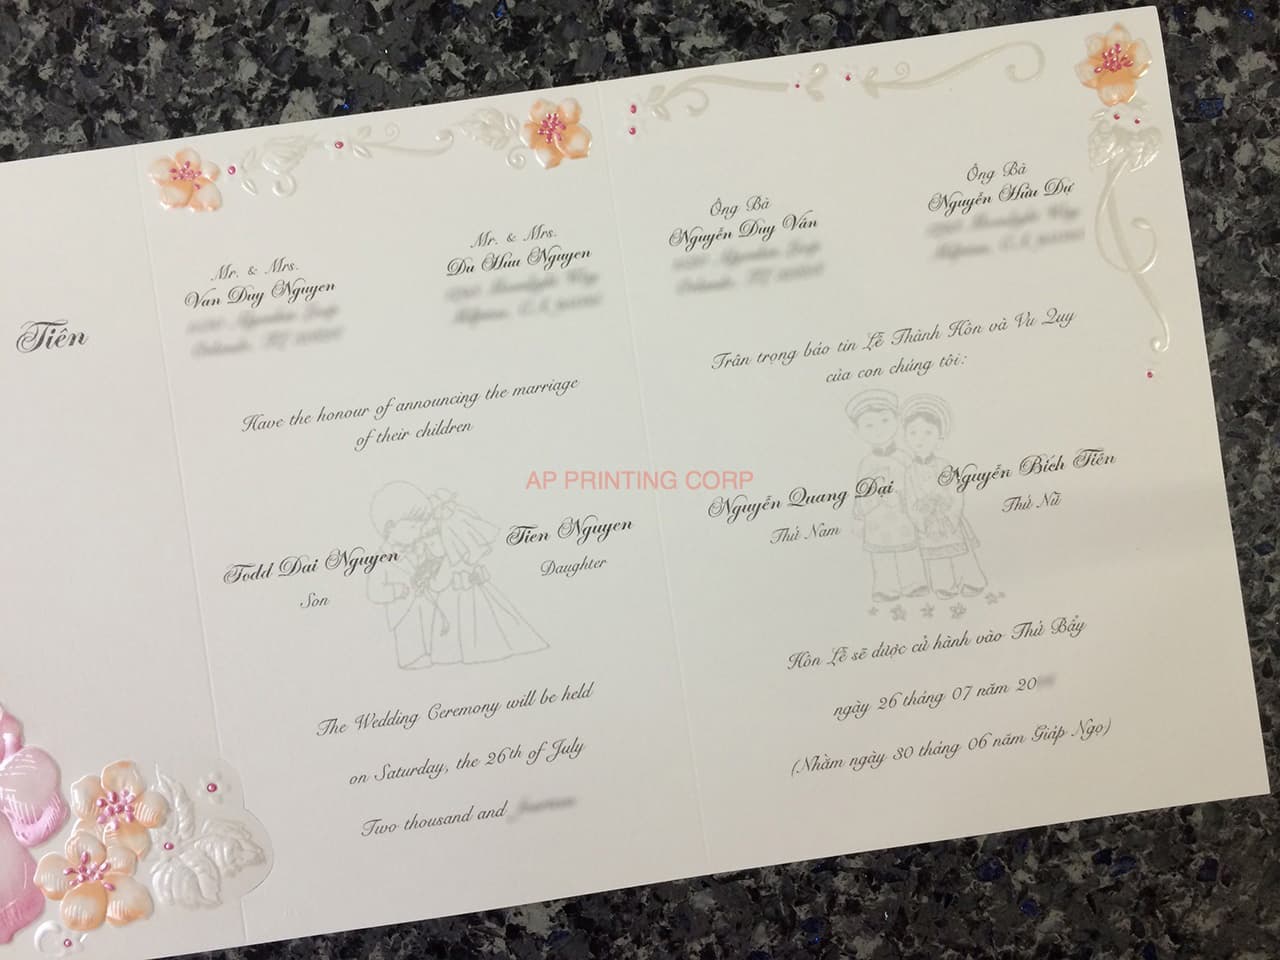 Tiên
Mr. & Mrs.
Van Duy Nguyen
Mr. & Mrs.
Du Huu Nguyen
Have the honour of announcing the marriage
of their children
Todd Dai Nguyen
Son
Tien Nguyen
Daughter
The Wedding Ceremony will be held
on Saturday, the 26th of July
Two thousand and
Ông Bà
Nguyễn Duy Vân
Ông Bà
Nguyễn Hữu Dự
Trân trọng báo tin Lễ Thành Hôn và Vu Quy
của con chúng tôi:
Nguyễn Quang Đại
Thứ Nam
Nguyễn Bích Tiên
Thứ Nữ
Hôn Lễ sẽ được cử hành vào Thứ Bẩy
ngày 26 tháng 07 năm 20
(Nhằm ngày 30 tháng 06 năm Giáp Ngọ)
AP PRINTING CORP